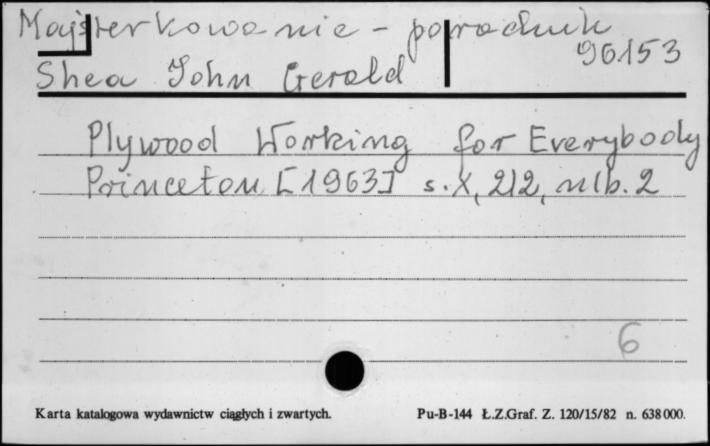 Majsterkowanie - poradnik
96153
Shea John Gerald
Plywood Working for Everybody
Princeton [1963] s. X, 212, nlb. 2
6
Karta katalogowa wydawnictw ciągłych i zwartych.
Pu-B-144 Ł.Z.Graf. Z. 120/15/82 n. 638000.